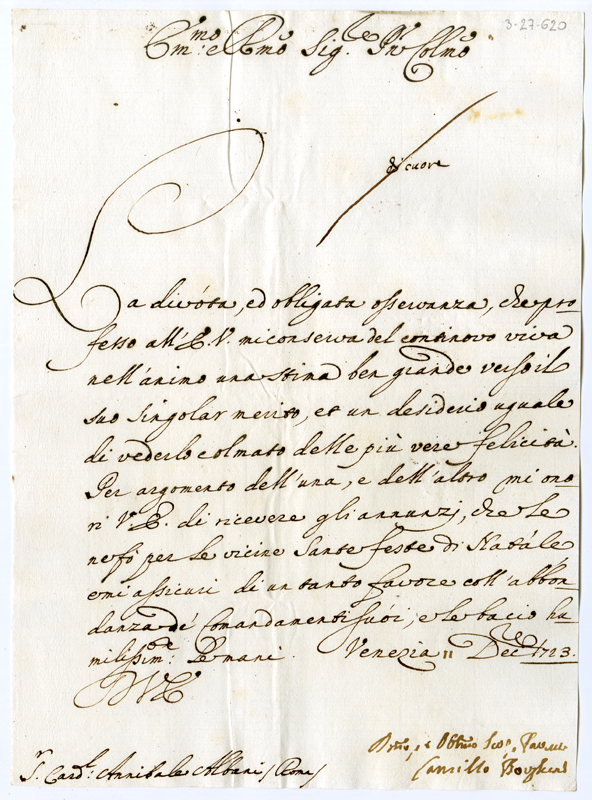 3-27-620
Em:mo e R.mo Sig.re P.ron Colmo
di cuore
La divóta, ed obligata osservanza, che pro-
fesso all'E.V. mi conserva del continovo viva
nell'ánimo una stima ben grande verso il
suo singolar merito, et un desiderio uguale
di vederlo colmato delle più vere felicità.
Per argomento dell'una, e dell'altro mi ono-
ri V.E. di ricevere gli annunzj, che le
ne fò per le vicine Sante feste di Natále
e mi assicuri di un tanto favore coll'abbon-
danza dé comandamenti suói; e le bacio hu-
milissim:te le mani. Venezia 11 Dec.re 1723.
D V E
S.r Card.l: Annibale Albani / Roma /
Camillo